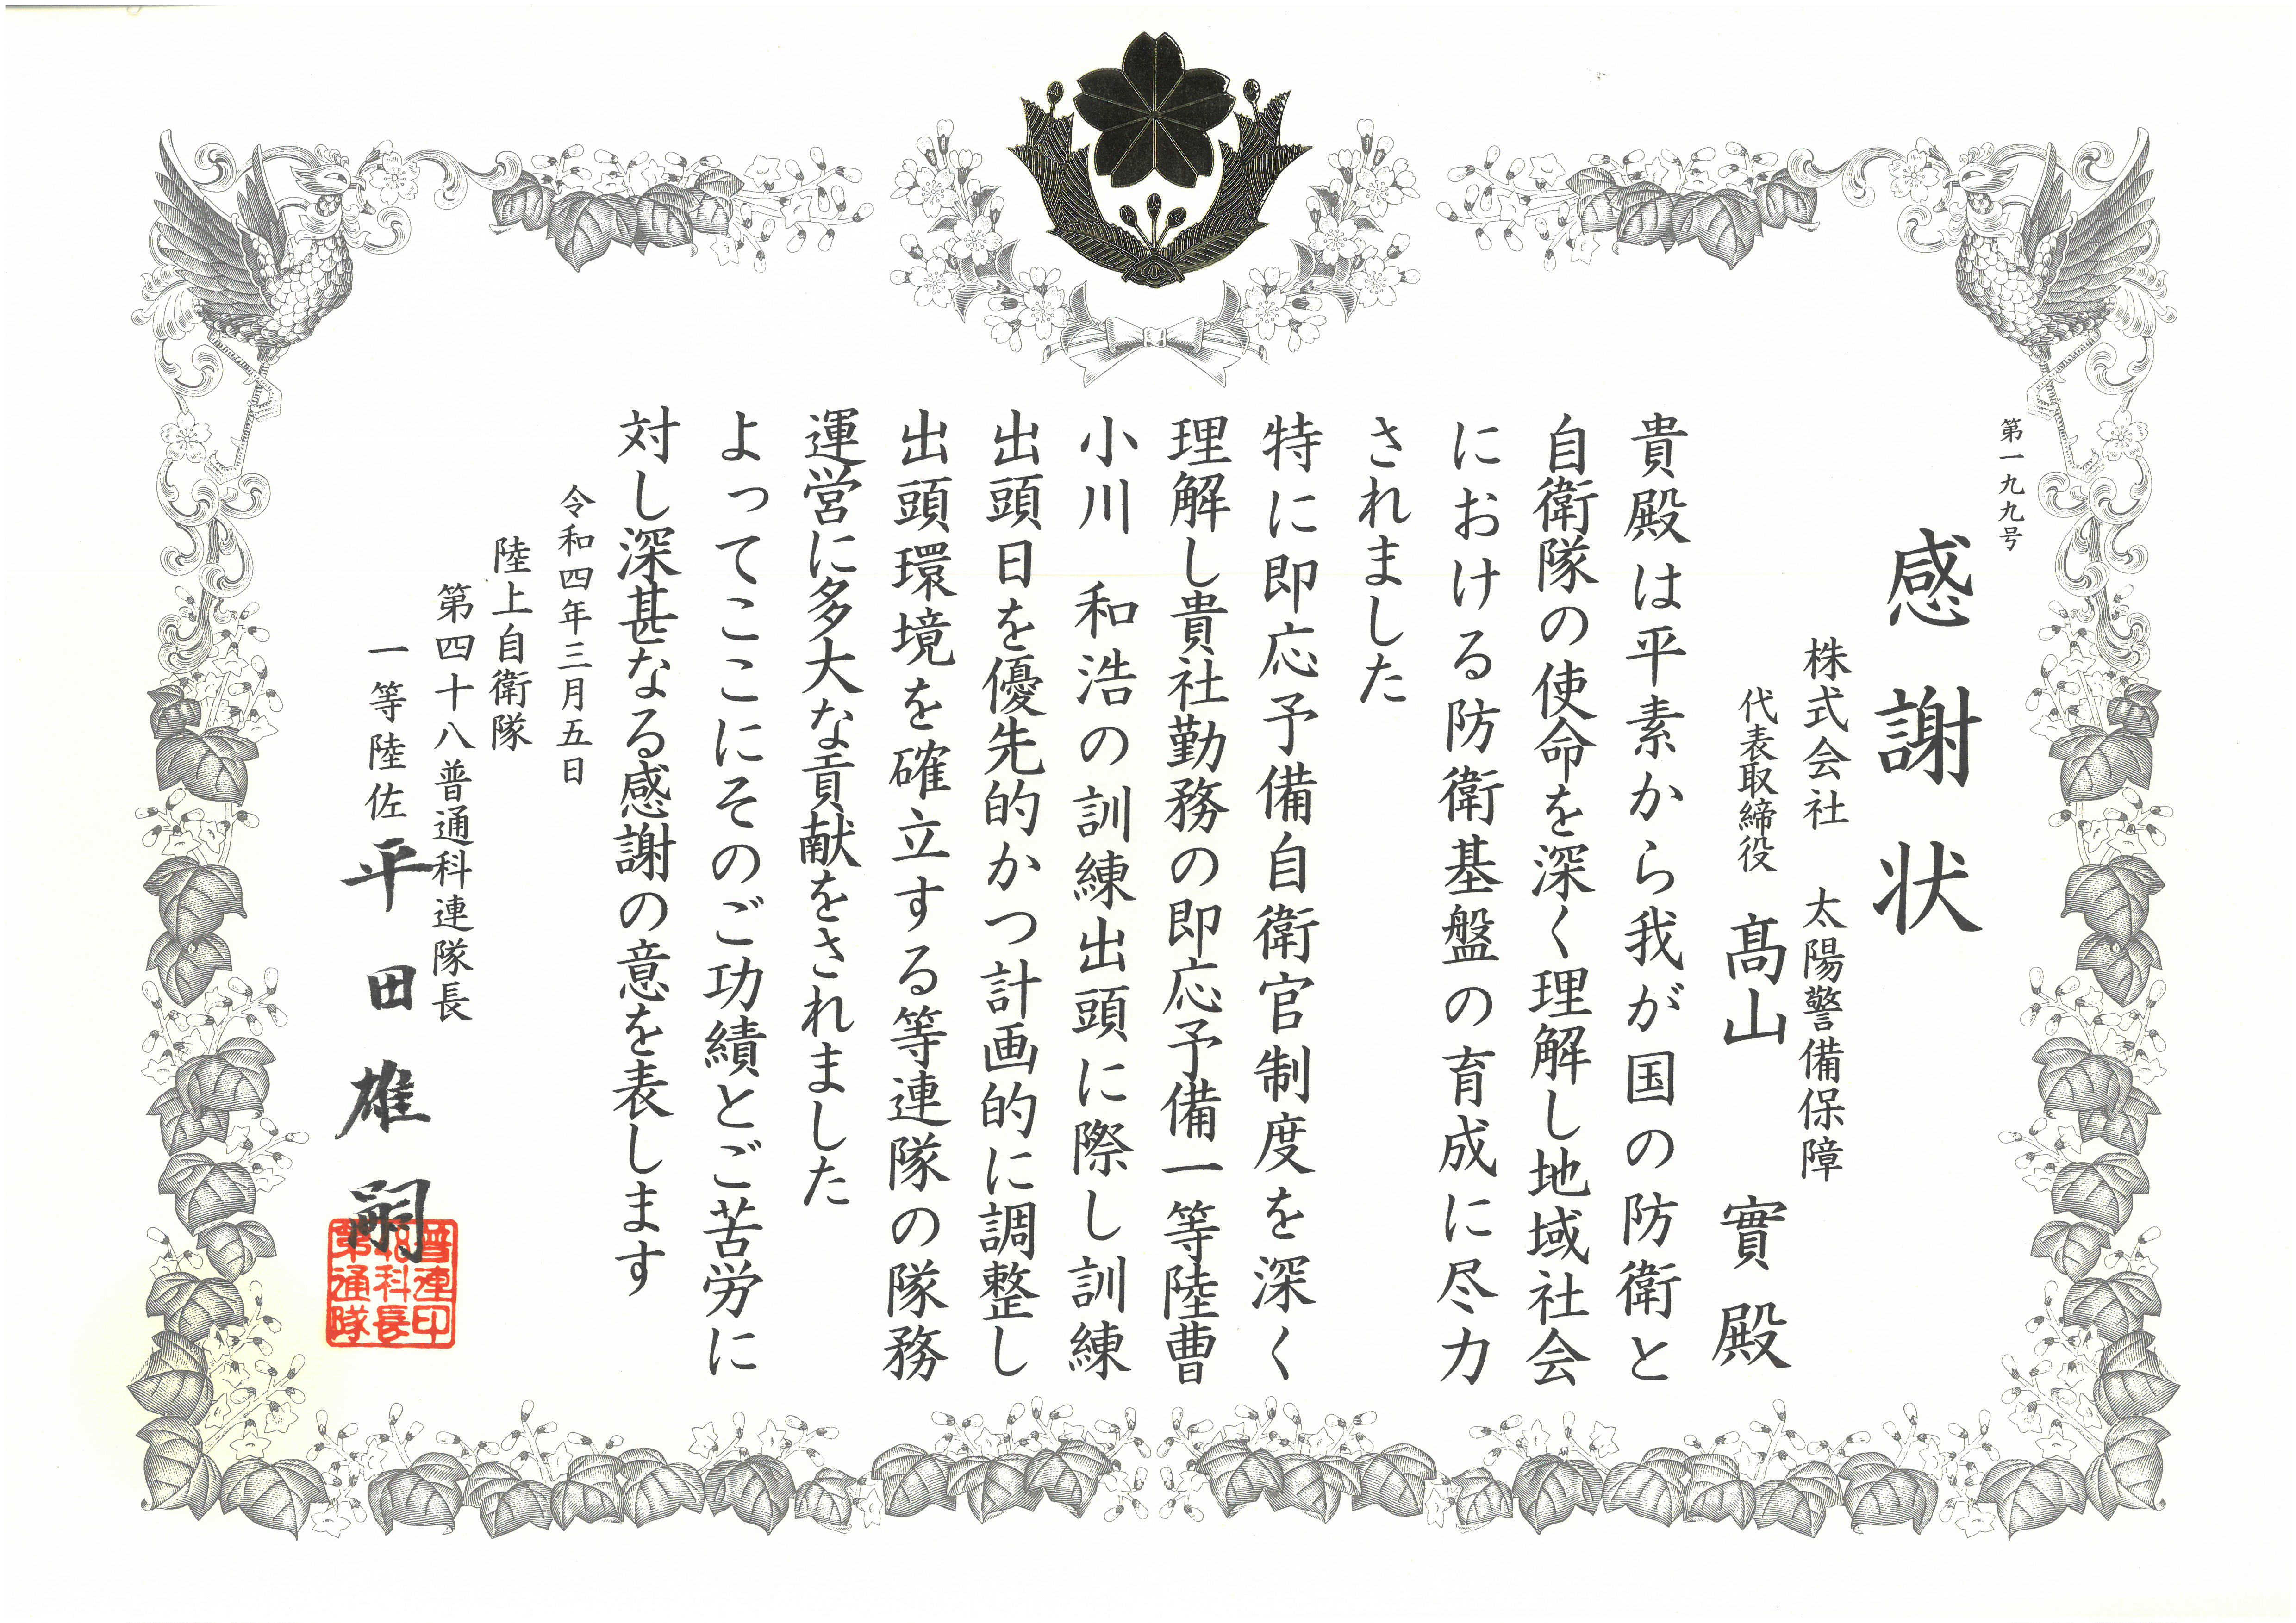 第一九九号
感謝状
株式会社　太陽警備保障
代表取締役　髙山　實殿
貴殿は平素から我が国の防衛と
自衛隊の使命を深く理解し地域社会
における防衛基盤の育成に尽力
されました
特に即応予備自衛官制度を深く
理解し貴社勤務の即応予備一等陸曹
小川　和浩の訓練出頭に際し訓練
出頭日を優先的かつ計画的に調整し
出頭環境を確立する等連隊の隊務
運営に多大な貢献をされました
よってここにそのご功績とご苦労に
対し深甚なる感謝の意を表します
令和四年三月五日
陸上自衛隊
第四十八普通科連隊長
一等陸佐　平田雄嗣